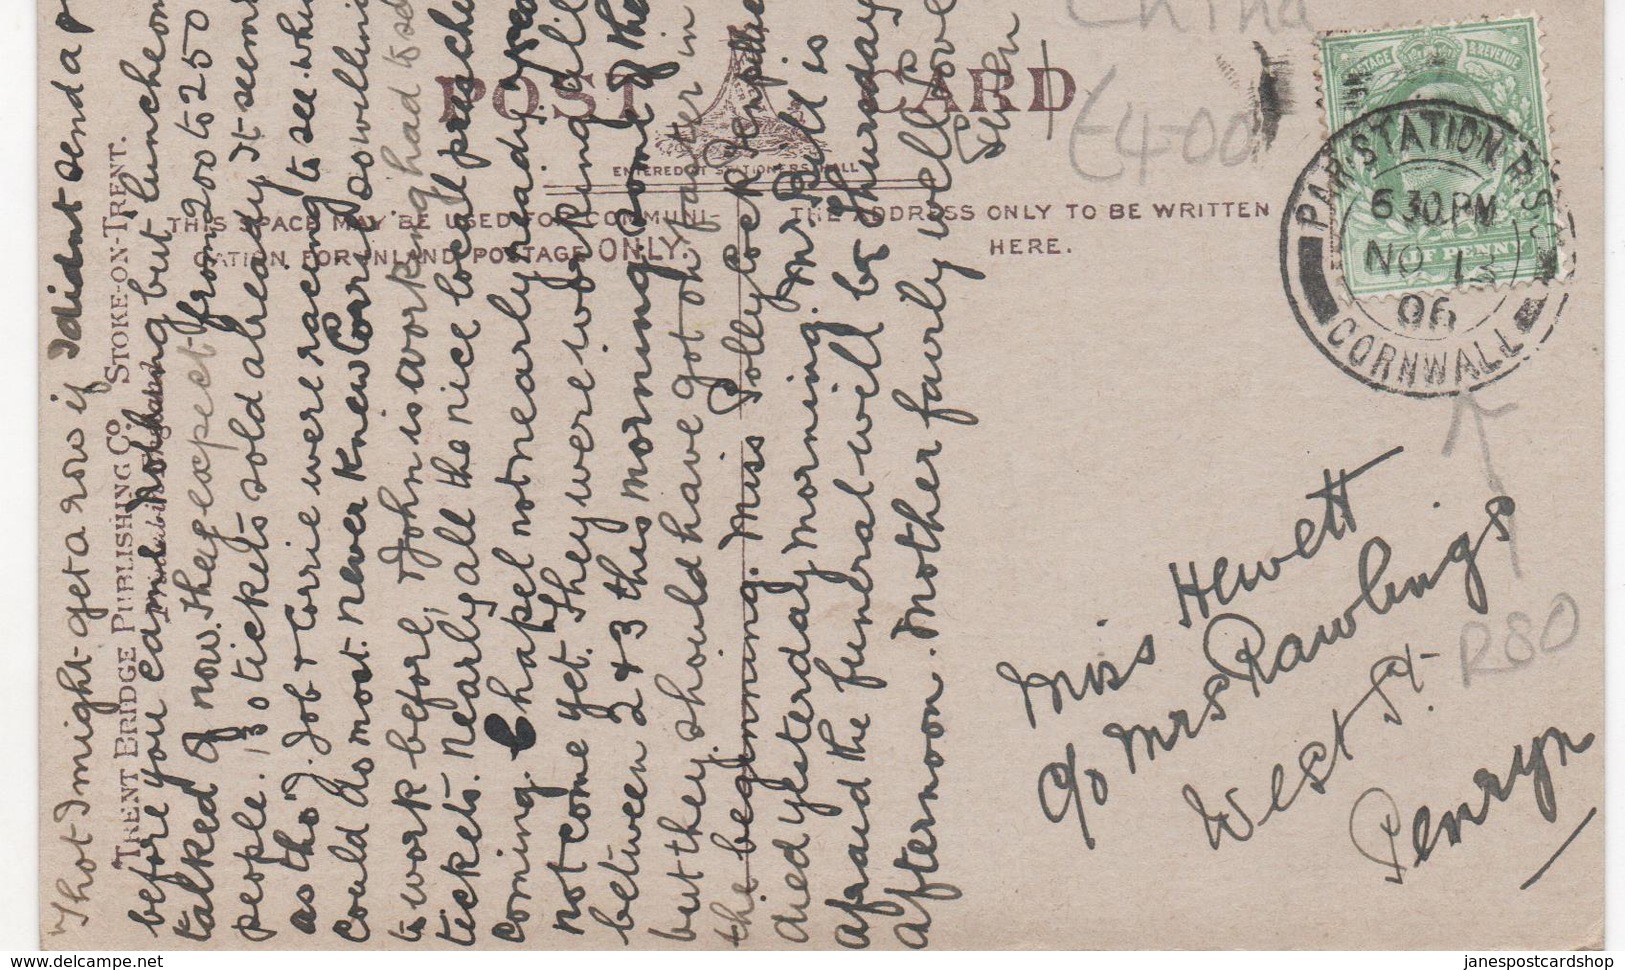 China
£4-00
POST CARD
ENTERED AT STATIONERS HALL
THIS SPACE MAY BE USED FOR COMMUNI-
CATION FOR INLAND POSTAGE ONLY.
THE ADDRESS ONLY TO BE WRITTEN
HERE.
POSTAGE & REVENUE
HALF PENNY
PAR STATION R.S.O
6 30 PM
NO 13
06
CORNWALL
Miss Hewett
c/o Mrs Rawlings
West St
Penryn
RSO
TRENT BRIDGE PUBLISHING Co. STOKE-ON-TRENT.
Thot I might get a row if I didnt send a p
before you came nothing but luncheon
talked of now. They expect from 200 to 250
people. 130 tickets sold already. It seem
as tho' J. Job & Corrie were racing to see whi
could do most. never knew Corrie so willin
to work before, & John is working had to se
tickets. Nearly all the nice local preache
coming. Chapel not nearly ready.
not come yet. They were working till
between 2 & 3 this morning some of the
but they should have got on faster in
the beginning. Miss Polly lock
died yesterday morning. Mr is
afraid the funeral will be Thursday
afternoon. Mother fairly well. Love
Ethn
janespostcardshop
www.delcampe.net